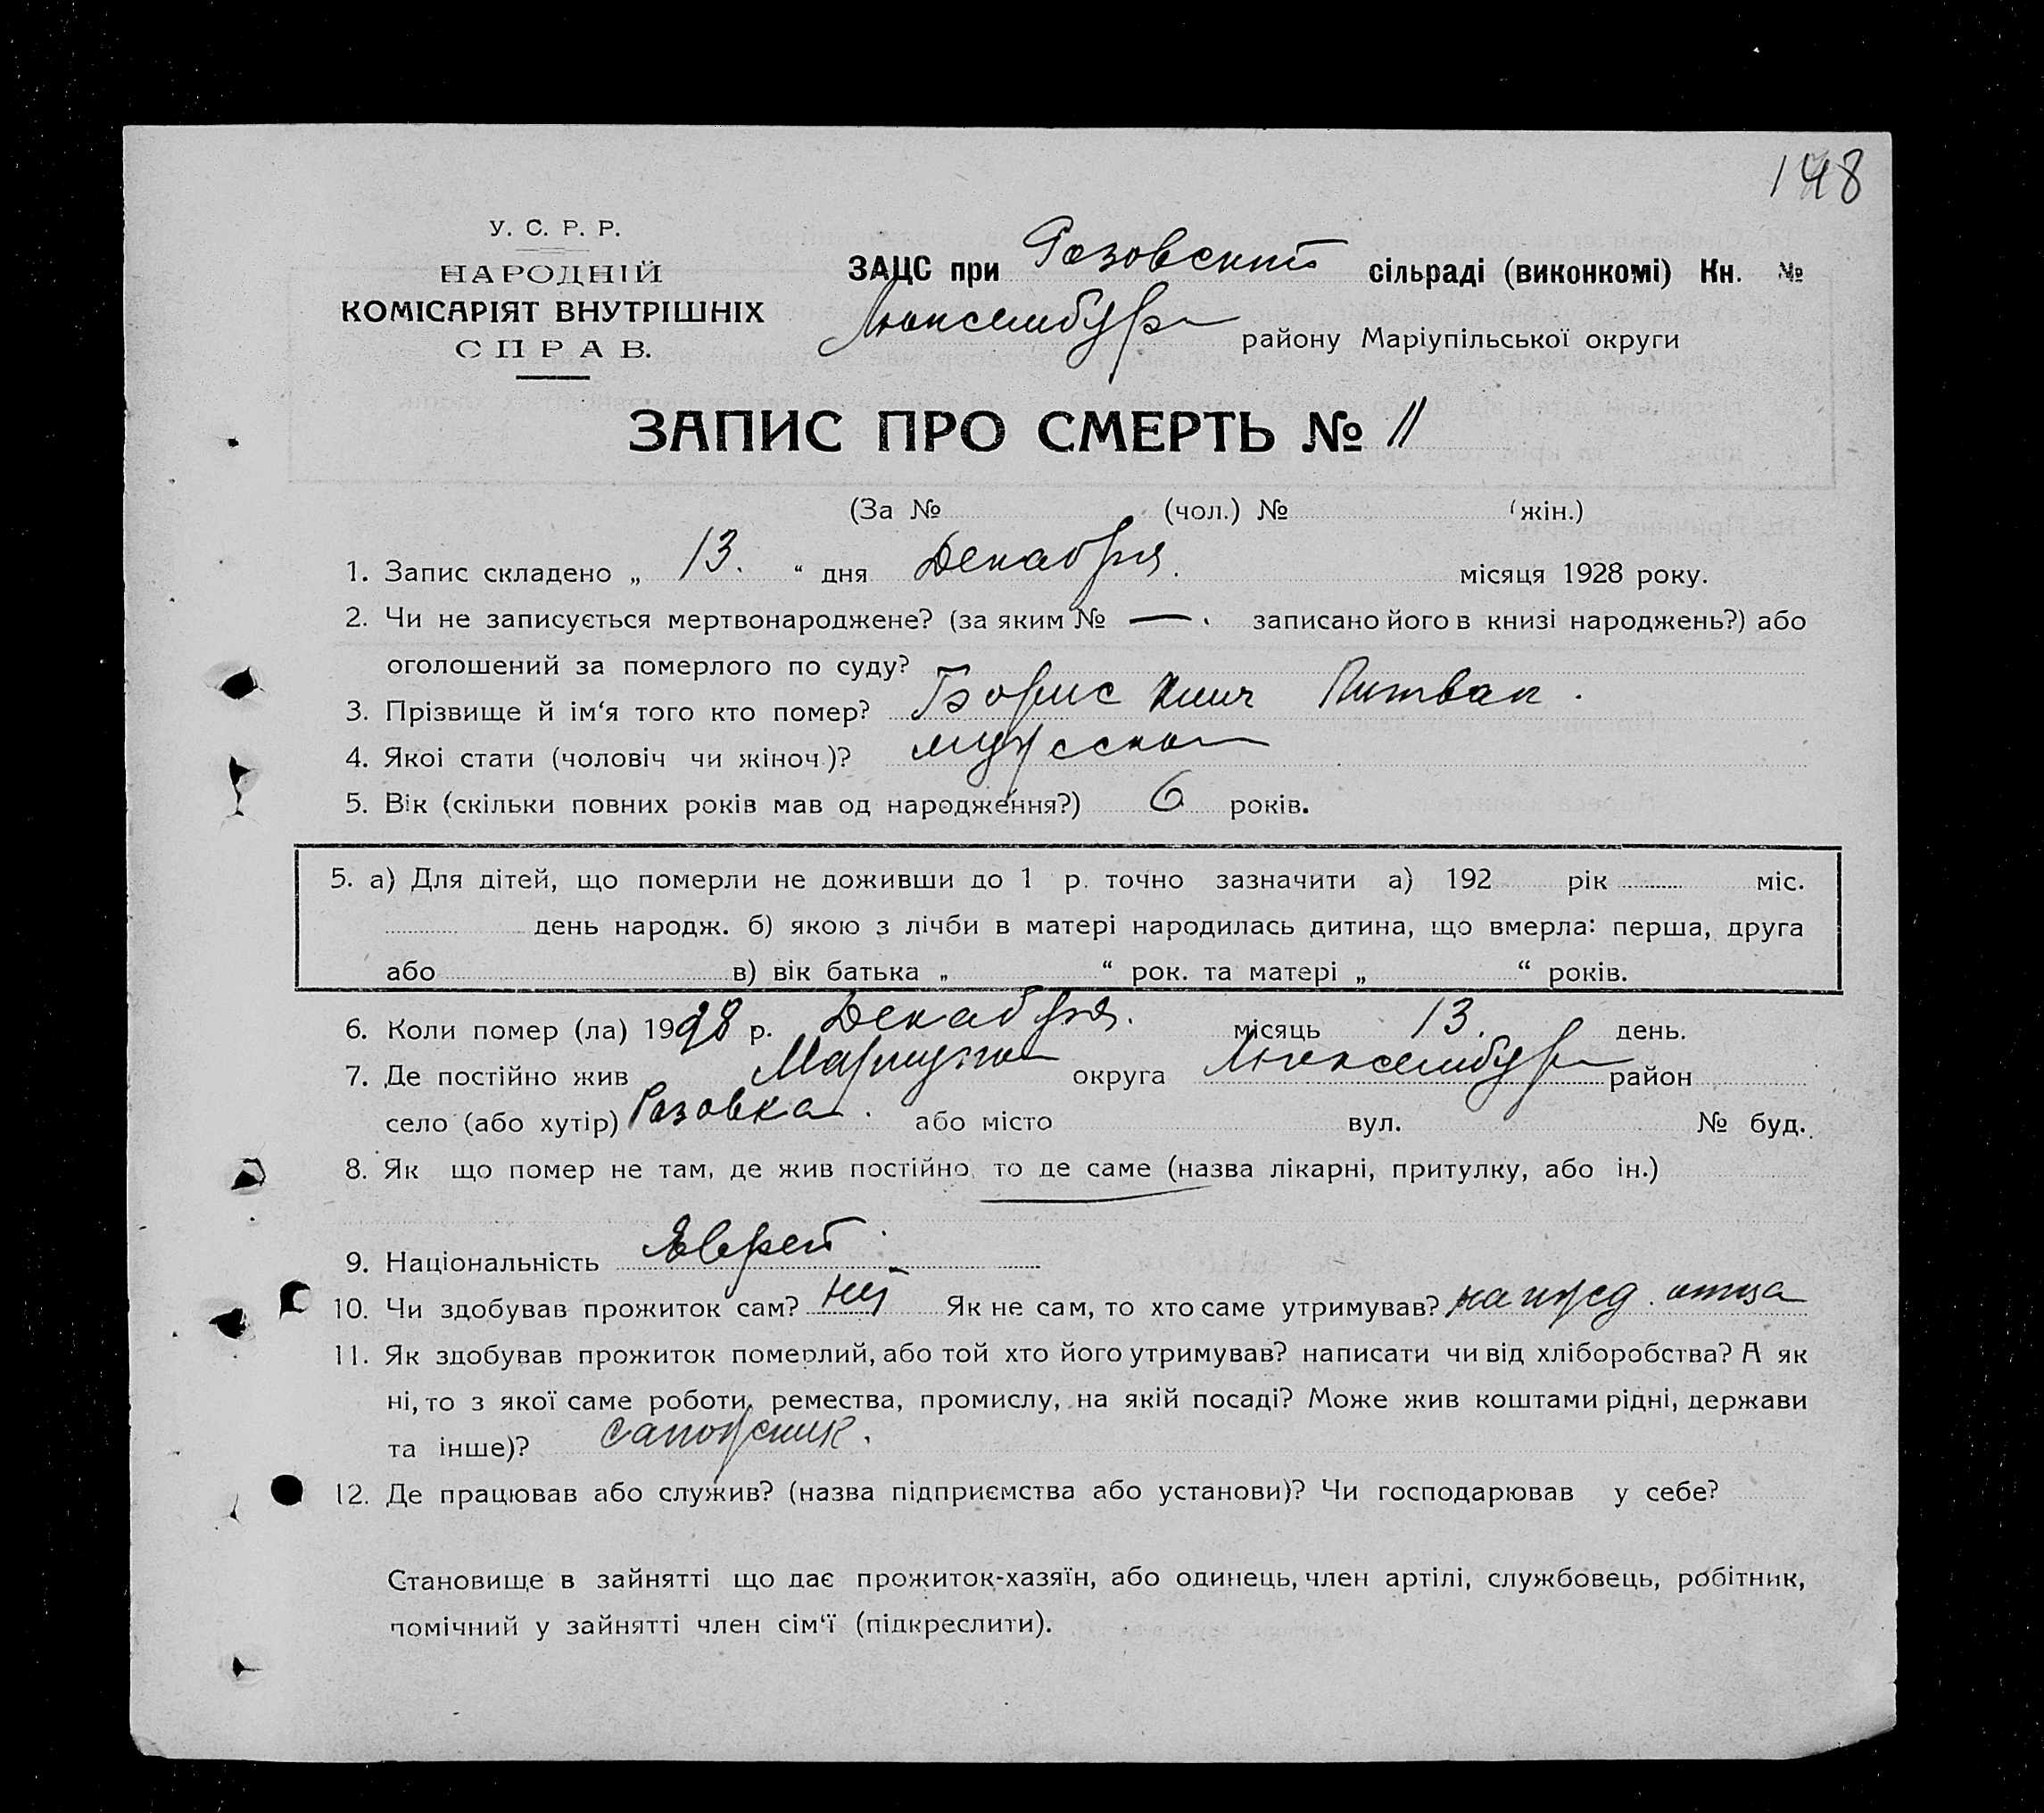 148
У. С. Р. Р.
НАРОДНІЙ
КОМІСАРІЯТ ВНУТРІШНІХ
СПРАВ.
ЗАЦС при Розовской сільраді (виконкомі) Кн. №
Люксембур району Маріупільської округи
ЗАПИС ПРО СМЕРТЬ № 11
(За № (чол.) № (жін.)
1. Запис складено „ 13. “ дня Декабря. місяця 1928 року.
2. Чи не записується мертвонароджене? (за яким № — . записано його в книзі народжень?) або
оголошений за померлого по суду?
3. Прізвище й ім‘я того кто помер? Борис Литвак .
4. Якоі стати (чоловіч чи жіноч.)? мужско
5. Вік (скільки повних років мав од народження?) 6 років.
5. а) Для дітей, що померли не доживши до 1 р. точно зазначити а) 192 рік міс.
день народж. б) якою з лічби в матері народилась дитина, що вмерла: перша, друга
або в) вік батька „ “ рок. та матері „ “ років.
6. Коли помер (ла) 1928 р. Декабря. місяць 13. день.
7. Де постійно жив Мариупо округа Люксембур район
село (або хутір) Розовка . або місто вул. № буд.
8. Як що помер не там, де жив постійно, то де саме (назва лікарні, притулку, або ін.)
9. Національність Еврей
10. Чи здобував прожиток сам? Як не сам, то хто саме утримував? на ижд. отца
11. Як здобував прожиток померлий, або той хто його утримував? написати чи від хліборобства? А як
ні, то з якої саме роботи, ремества, промислу, на якій посаді? Може жив коштами рідні, держави
та інше)? сапожник.
12. Де працював або служив? (назва підприємства або установи)? Чи господарював у себе?
Становище в зайнятті що дає прожиток-хазяїн, або одинець, член артілі, службовець, робітник,
помічний у зайнятті член сім‘ї (підкреслити).